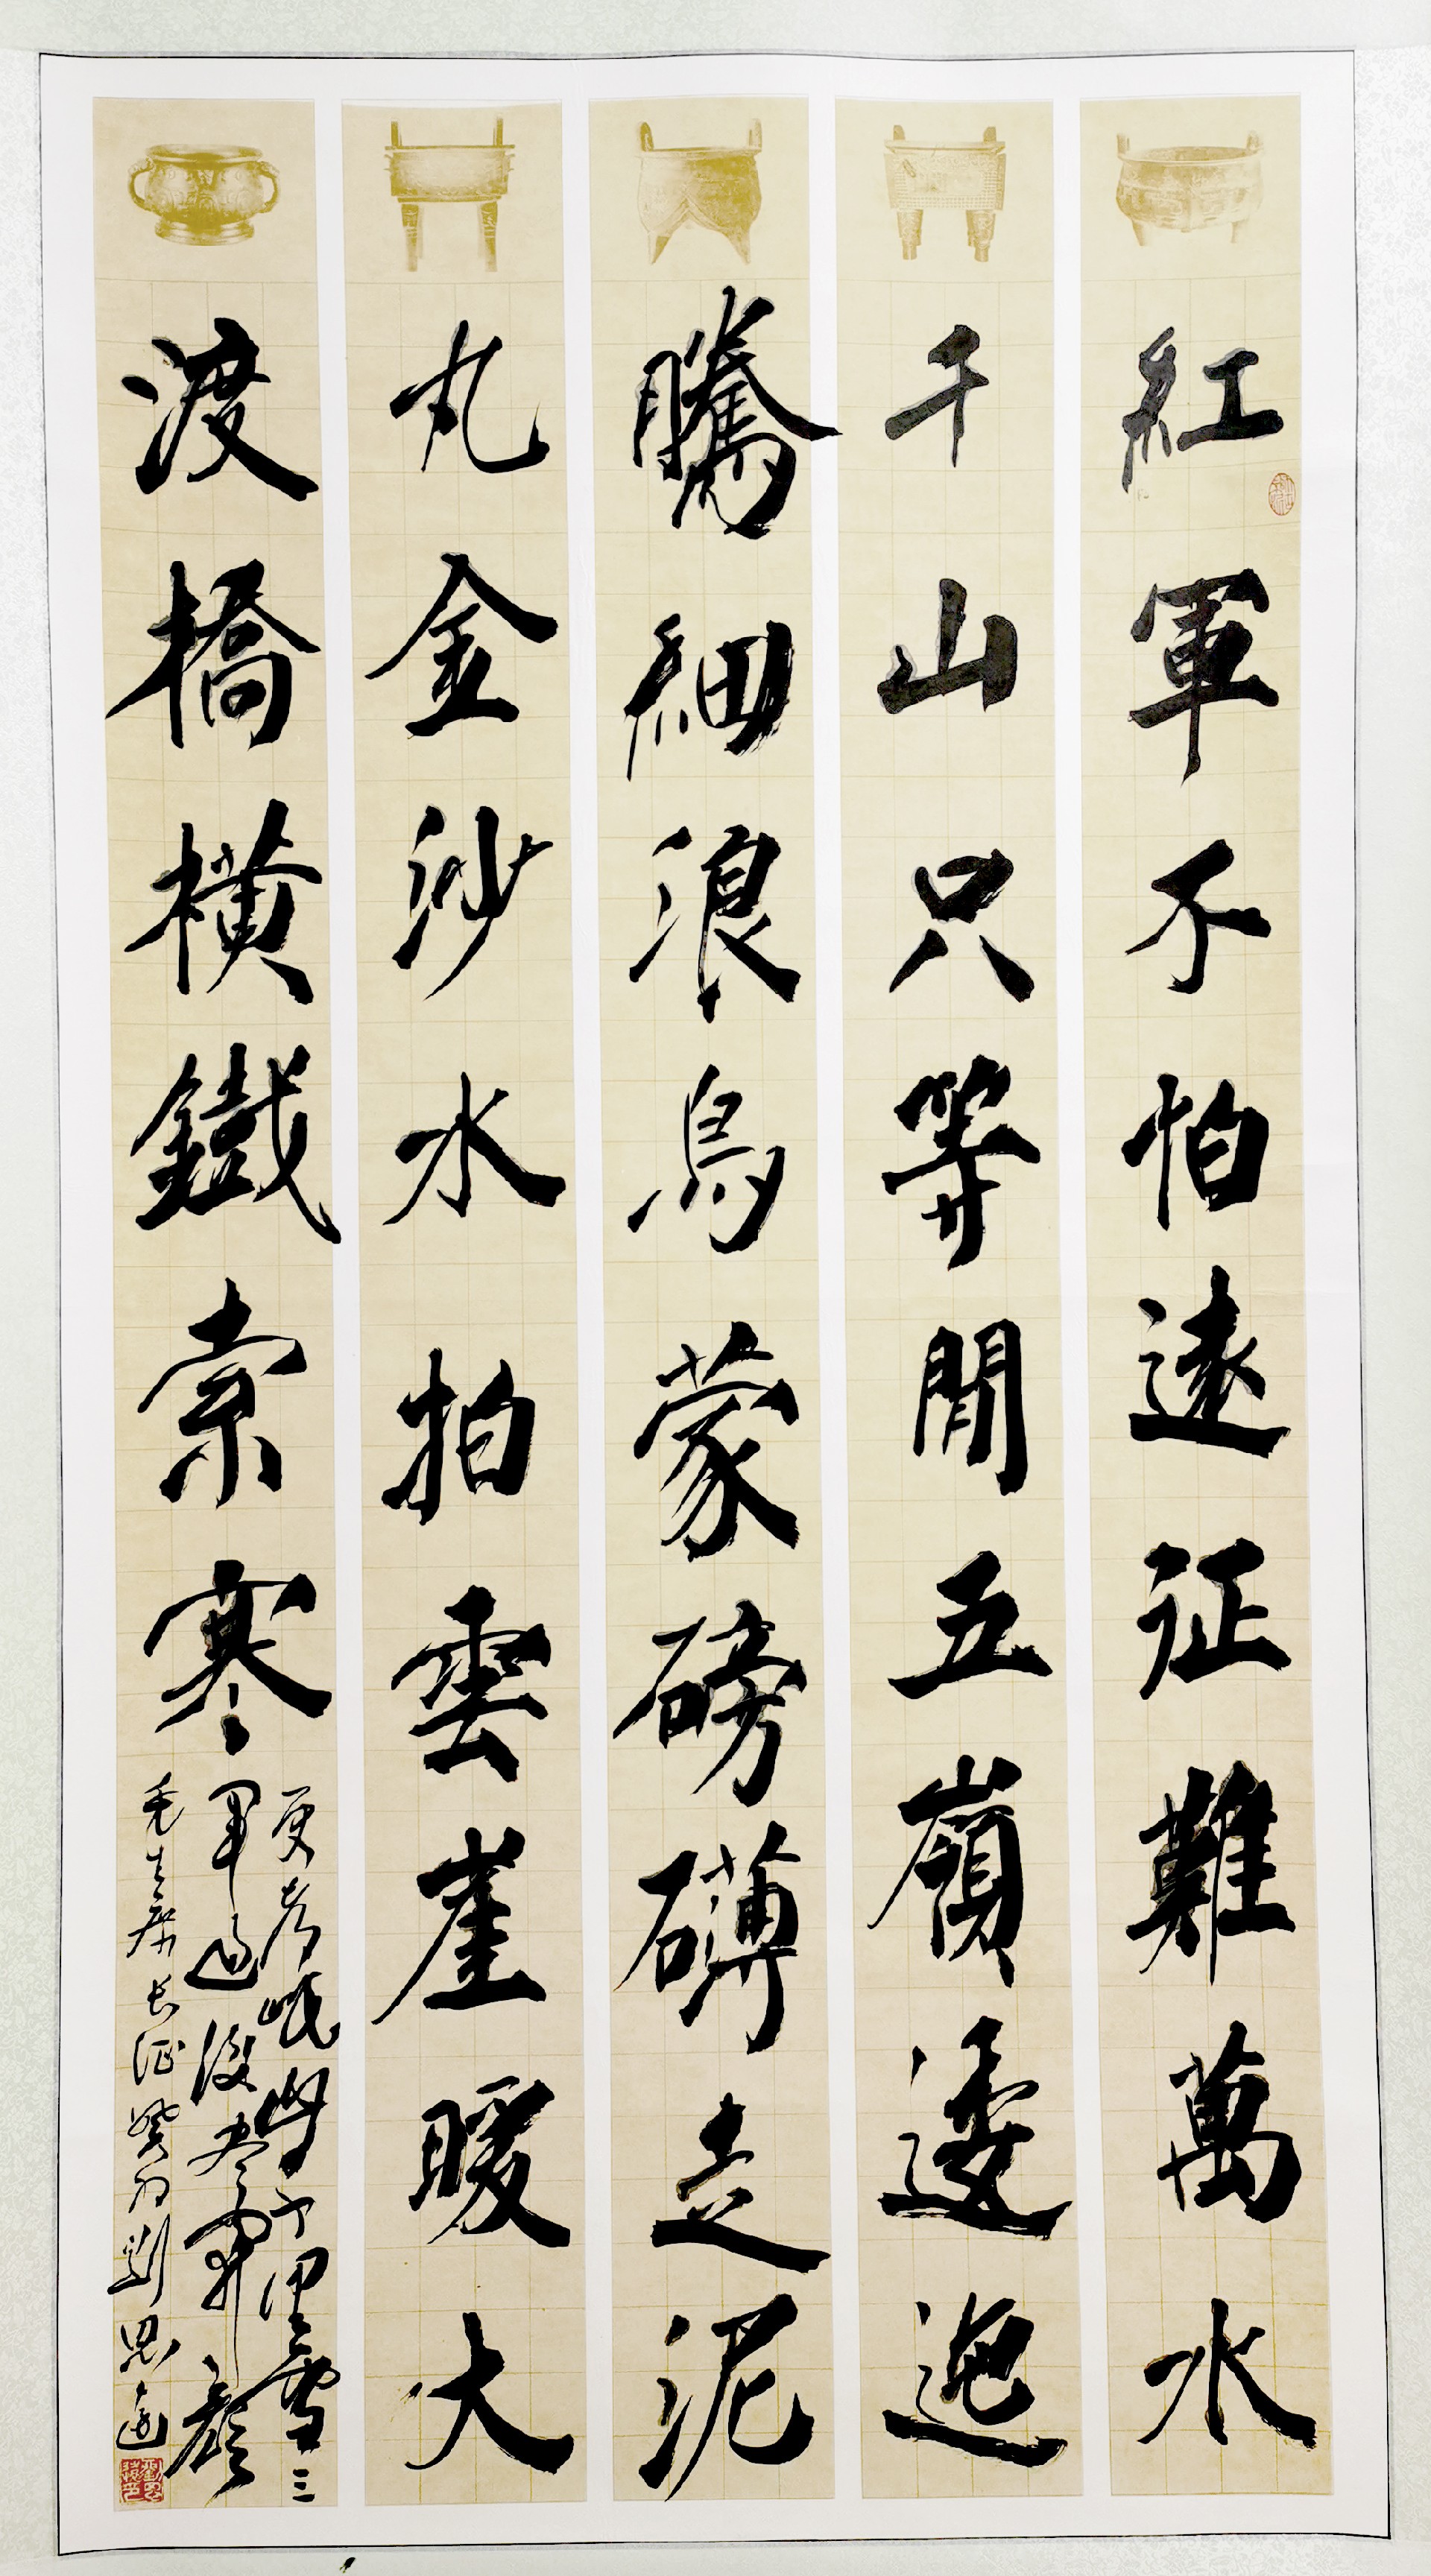 紅軍不怕遠征難萬水
千山只等閒五嶺逶迤
騰細浪烏蒙磅礴走泥
丸金沙水拍雲崖暖大
渡橋橫鐵索寒
更喜岷山千里雪三
軍過後盡開顏
毛主席长征癸卯劉思